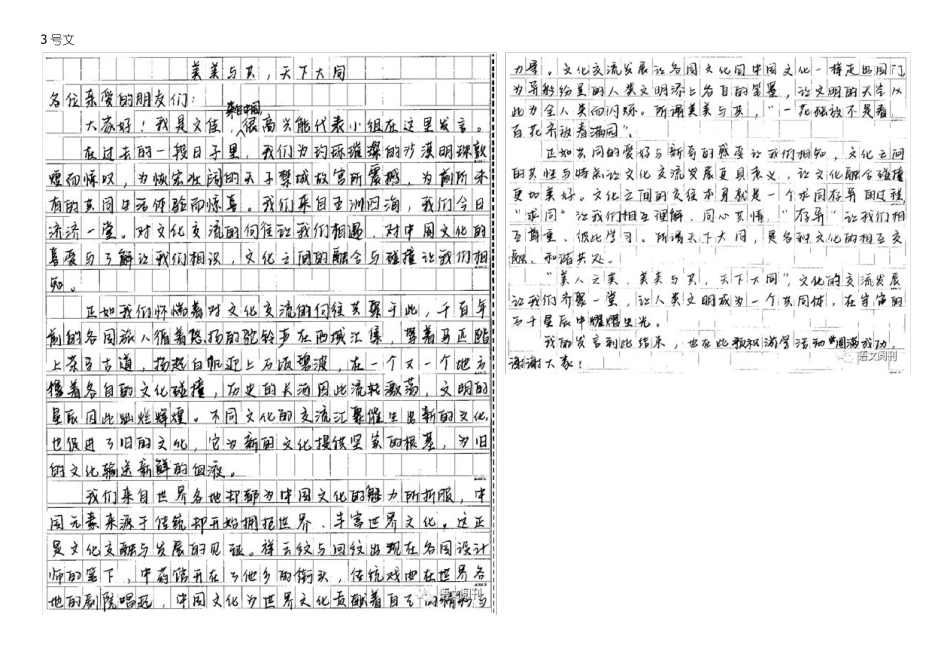 3号文
美美与共，天下大同
各位亲爱的朋友们：
来自中国
大家好！我是文佳，很高兴能代表小组在这里发言。
在过去的一段日子里，我们为闪烁璀璨的沙漠明珠敦
煌而惊叹，为恢宏壮阔的天子禁城故宫所震撼，为前所未
有的共同生活体验而惊喜。我们来自五洲四海，我们今日
济济一堂。对文化交流的向往让我们相遇，对中国文化的
喜爱与了解让我们相识，文化之间的融合与碰撞让我们相
知。
正如我们怀揣着对文化交流的向往共聚于此，千百年
前的各国旅人循着悠扬的驼铃声在西域汇集，驾着马匹踏
上茶马古道，扬起白帆迎上万顷碧波，在一个又一个地方
撞着各自的文化碰撞，历史的长河因此流转激荡，文明的
星辰因此灿烂辉煌。不同文化的交流汇聚催生出新的文化，
也促进了旧的文化，它为新的文化提供坚实的根基，为旧
的文化输送新鲜的血液。
我们来自世界各地却都为中国文化的魅力所折服，中
国元素来源于传统却开始拥抱世界、丰富世界文化。这正
是文化交融与发展的见证。祥云纹与回纹出现在各国设计
师的笔下，中药馆开在了他乡的街头，传统戏曲在世界各
地的剧院唱起，中国文化为世界文化贡献着自己的精彩与
力量。文化交流发展让各国文化同中国文化一样走出国门，
为导航绘美的人类文明添上各自的笔墨，让文明的天空从
此为全人类而闪烁。所谓美美与共，“一花独放不是春，
百花齐放春满园”。
正如共同的爱好与新奇的感受让我们相知，文化之间
的共性与特点让文化交流发展更具意义，让文化融合碰撞
更加美好。文化之间的交往本身就是一个求同存异的过程，
“求同”让我们相互理解、同心共情，“存异”让我们相
互尊重、彼此学习。所谓天下大同，是各种文化的相互交
融、和谐共处。
“美人之美，美美与共，天下大同”，文化的交流发展
让我们齐聚一堂，让人类文明成为一个共同体，在宇宙的
万千星辰中熠熠生光。
我的发言到此结束，也在此预祝游学活动圆满成功，
谢谢大家！
语文阅刊
语文阅刊